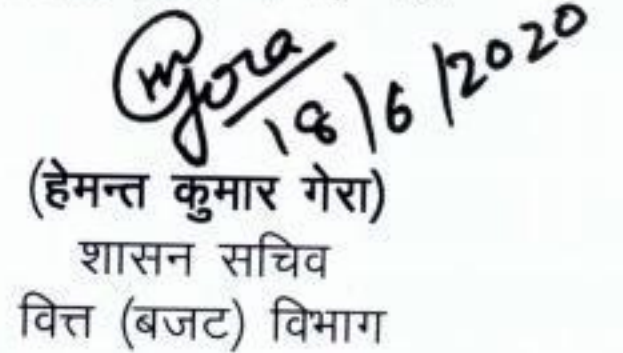 18/6/2020
(हेमन्त कुमार गेरा)
शासन सचिव
वित्त (बजट) विभाग